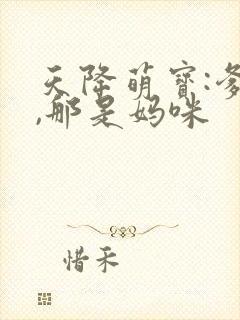 天降萌宝:爹
,那是妈咪
惜禾